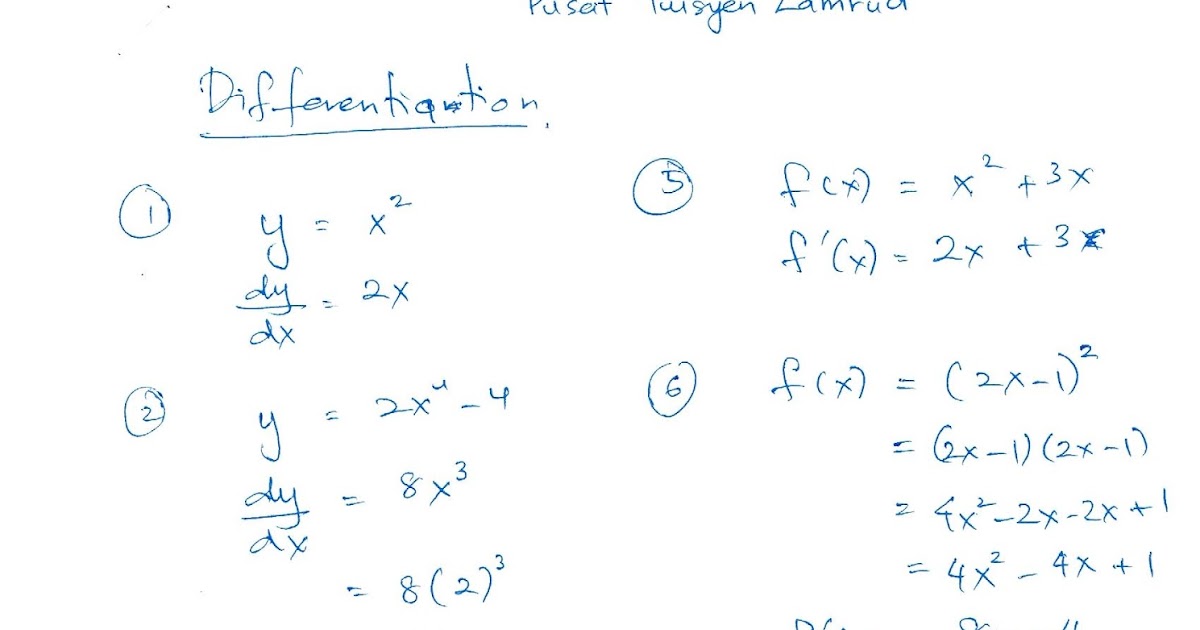 Pusat Tuisyen Zamrud
Differentiation.
1
y = x²
dy/dx = 2x
2
y = 2x⁴ - 4
dy/dx = 8x³
= 8(2)³
5
f(x) = x² + 3x
f'(x) = 2x + 3
6
f(x) = (2x-1)²
= (2x-1)(2x-1)
= 4x²-2x-2x+1
= 4x² - 4x + 1